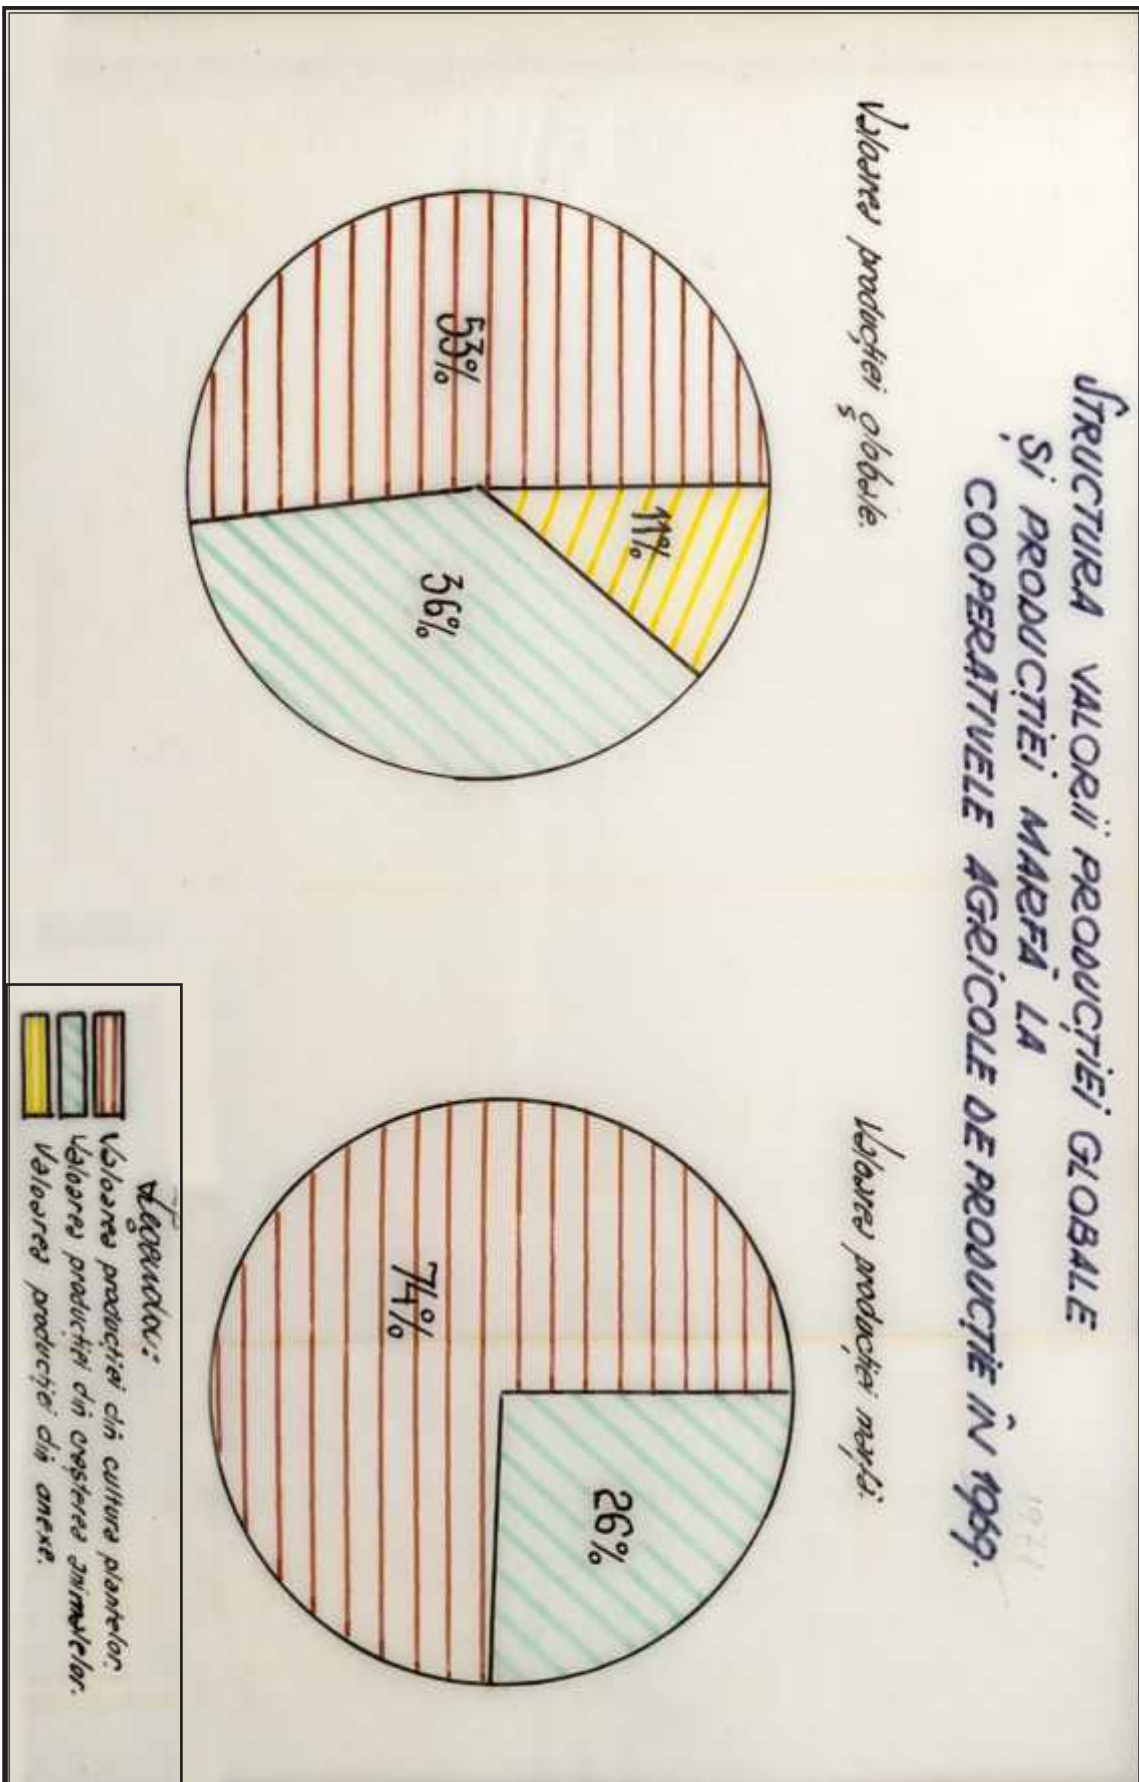 STRUCTURA VALORII PRODUCȚIEI GLOBALE
ȘI PRODUCȚIEI MARFĂ LA
COOPERATIVELE AGRICOLE DE PRODUCȚIE ÎN 1969.
1971
Valoarea producției globale.
11%
53%
36%
Valoarea producției marfă.
26%
74%
Legenda:
Valoarea producției din cultura plantelor.
Valoarea producției din creșterea animalelor.
Valoarea producției din anexe.